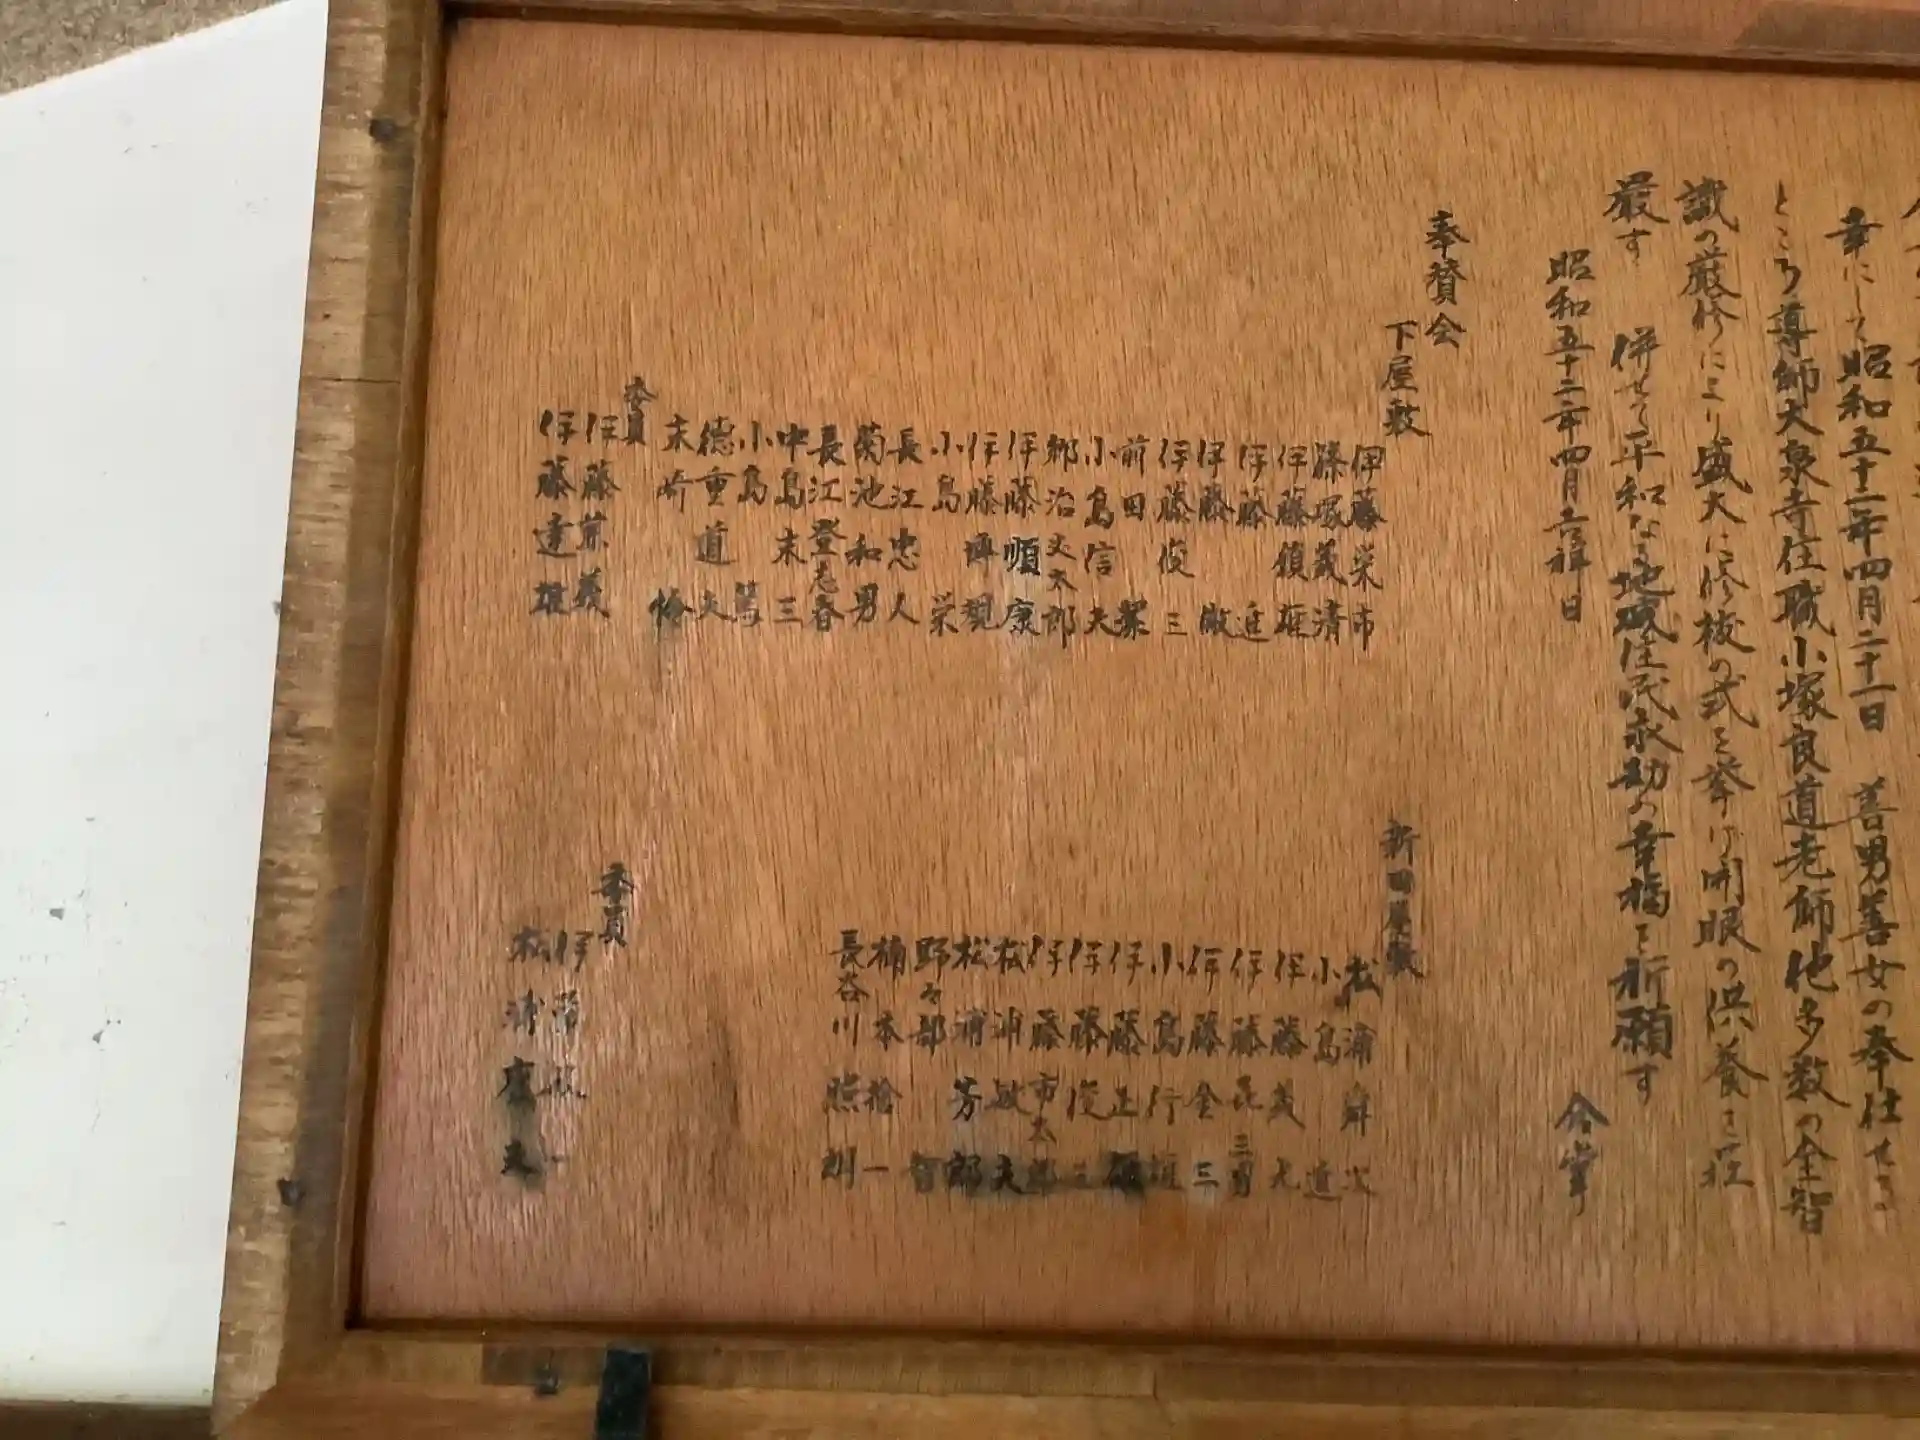 幸にして昭和五十二年四月二十一日 善男善女の奉仕せる
ところ導師大泉寺住職小塚良道老師他多数の全智
識の厳修により盛大に修祓の式を挙げ開眼の供養を荘
厳す 併せて平和なる地域住民永劫の幸福を祈願す
昭和五十二年四月吉祥日 合掌
奉賛会
下屋敷
伊藤栄市
藤塚義清
伊藤 雄
伊藤 進
伊藤 徹
伊藤俊三
前田
小島信夫
郷治丈太郎
伊藤順康
伊藤博親
小島 栄
長江忠人
菊池和男
長江登志春
中島末三
小島 篤
徳重道夫
末崎
委員
伊藤 義
伊藤達雄
新田屋敷
松浦舜次
小島 進
伊藤茂光
伊藤 三男
伊藤金三
小島行
伊藤正
伊藤俊三
伊藤市太郎
松浦敏夫
松浦芳郎
野々部 智
楠本 一
長谷川照
委員
伊藤 一
松浦 夫